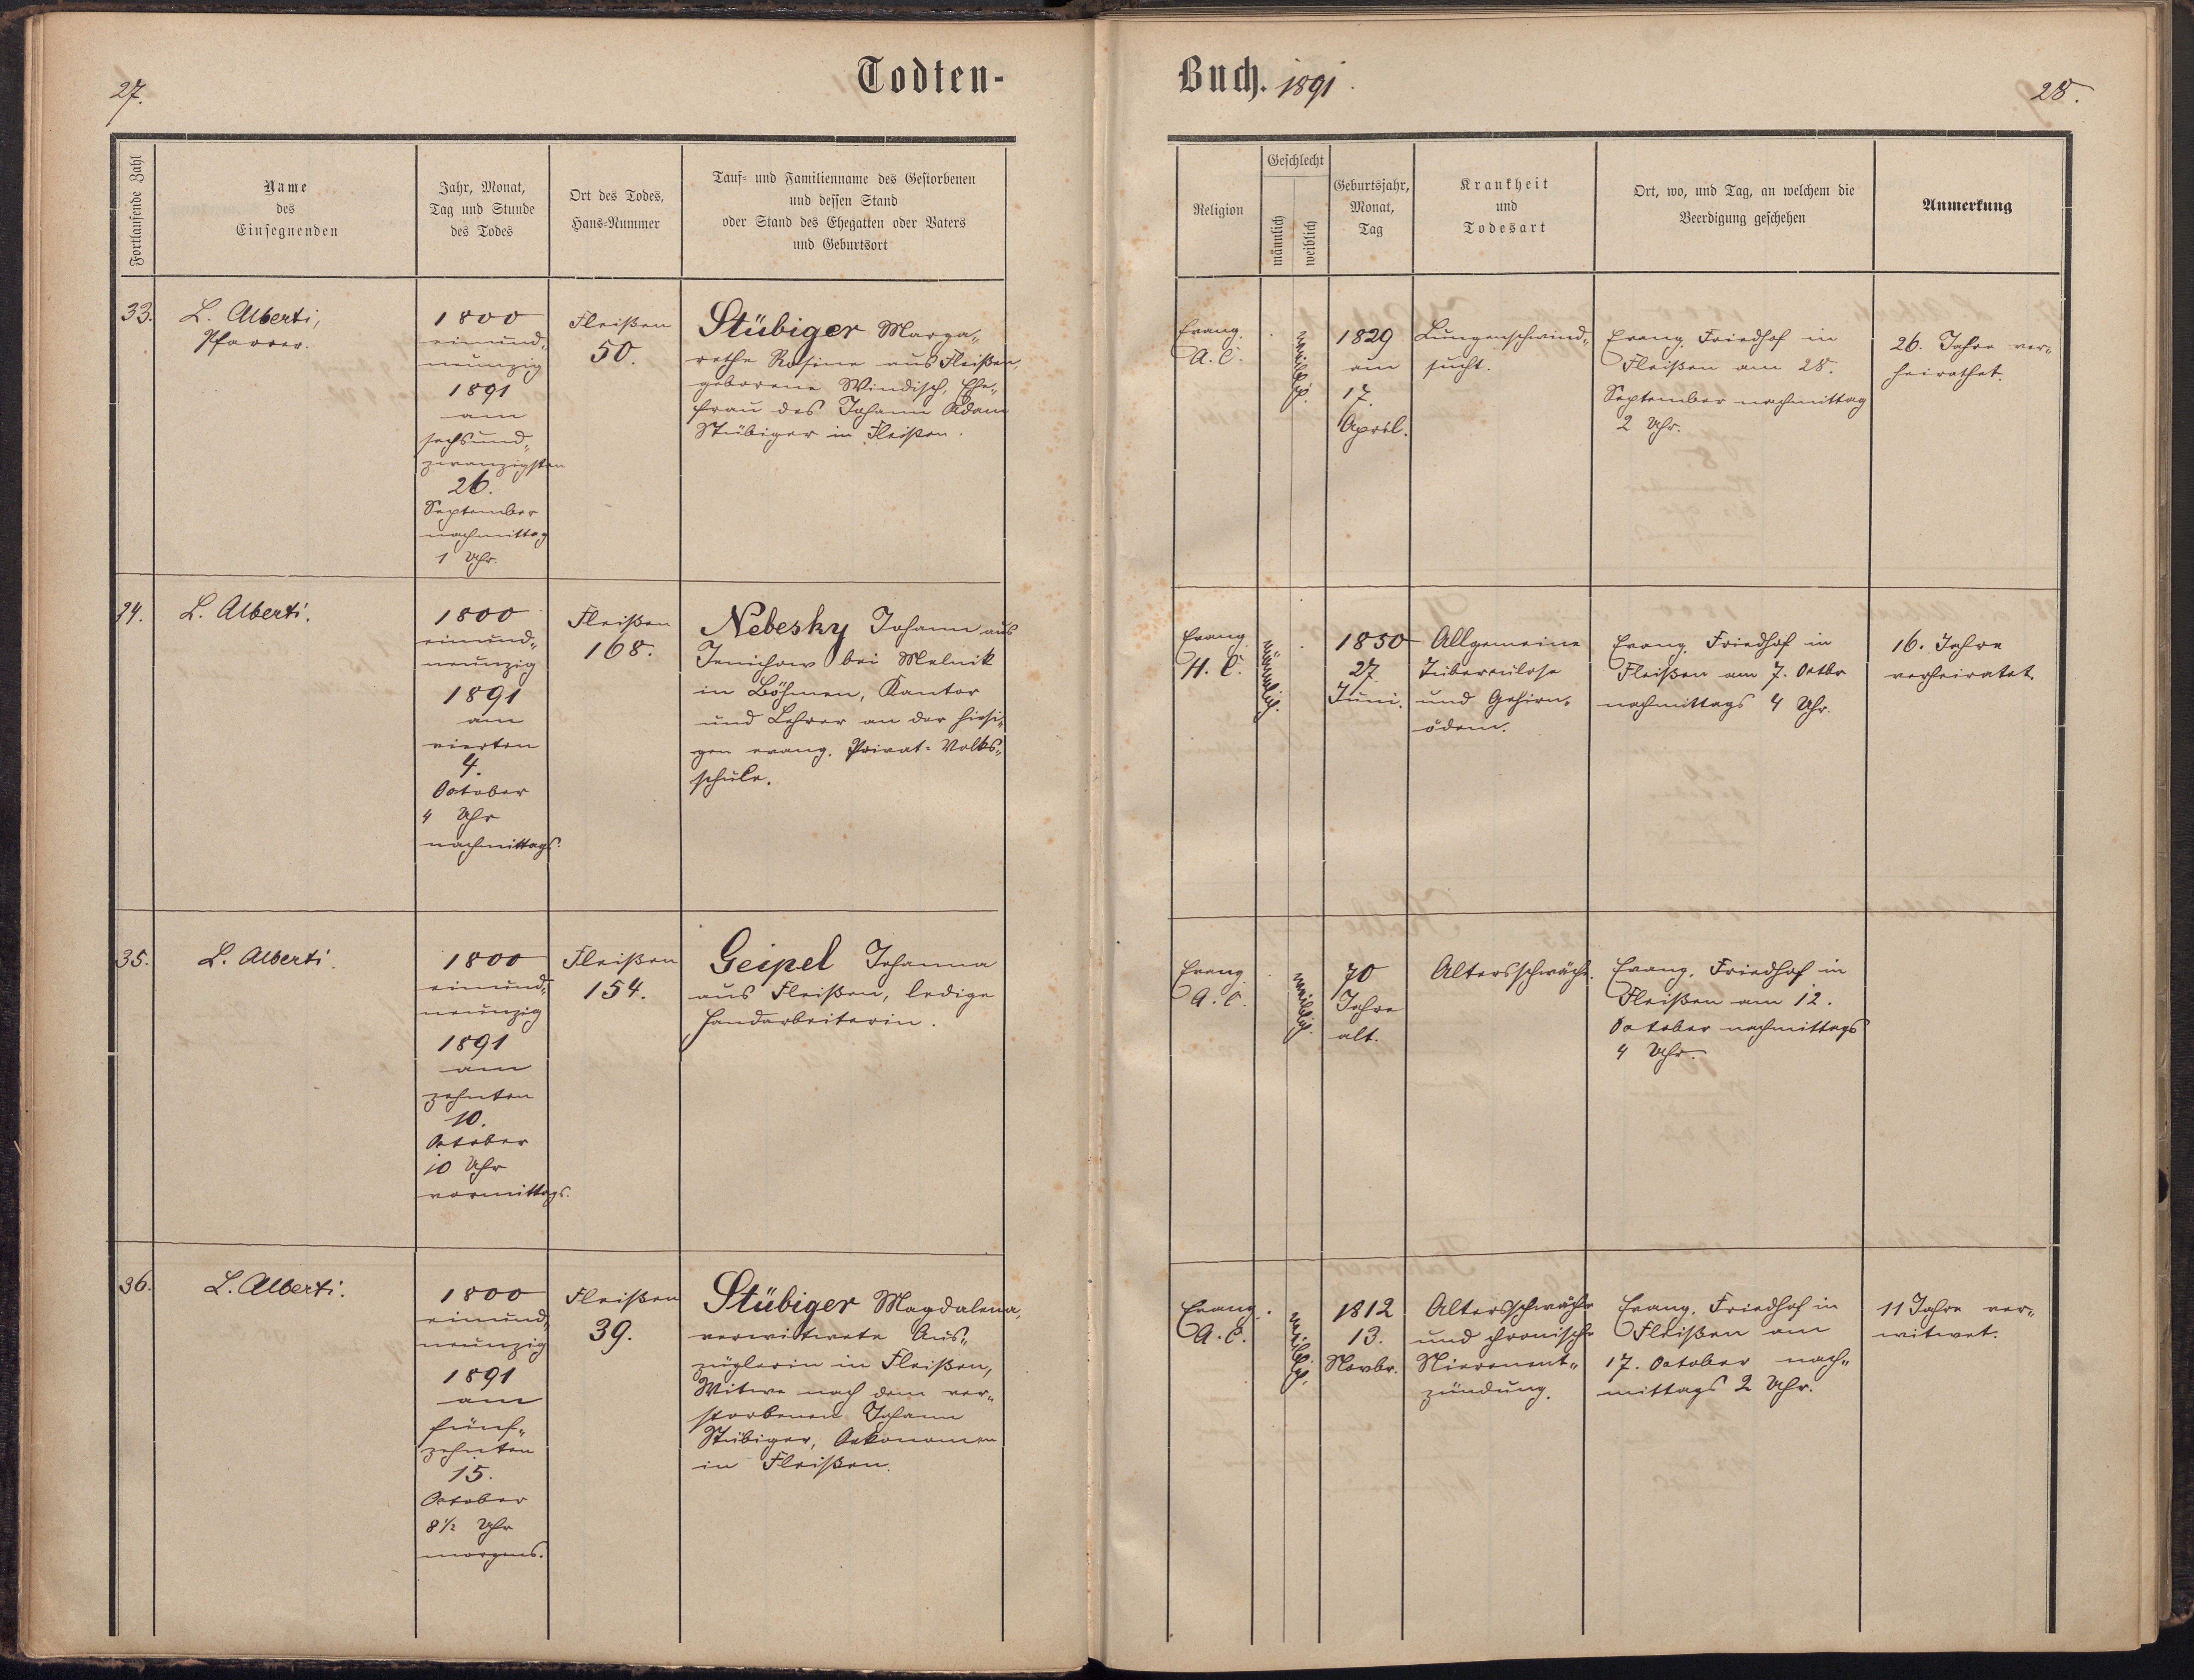 27.
Todten-
Buch. 1891.
28.
Fortlaufende Zahl
Name
des
Einsegnenden
Jahr, Monat,
Tag und Stunde
des Todes
Ort des Todes,
Haus-Nummer
Tauf- und Familienname des Gestorbenen
und dessen Stand
oder Stand des Ehegatten oder Vaters
und Geburtsort
Religion
Geschlecht
männlich
weiblich
Geburtsjahr,
Monat,
Tag
Krankheit
und
Todesart
Ort, wo, und Tag, an welchem die
Beerdigung geschehen
Anmerkung
33.
L. Alberti,
Pfarrer.
1800
einund-
neunzig
1891
am
sechsund-
zwanzigsten
26.
September
nachmittag
1 Uhr.
Fleißen
50.
Stübiger Marga-
rethe Rosine aus Fleißen,
geborene Windisch, Ehe-
frau des Johann Adam
Stübiger in Fleißen.
Evang.
A. C.
weiblich.
1829
am
17.
April.
Lungenschwind-
sucht.
Evang. Friedhof in
Fleißen am 28.
September nachmittag
2 Uhr.
26. Jahre ver-
heirathet.
34.
L. Alberti.
1800
einund-
neunzig
1891
am
vierten
4.
October
4 Uhr
nachmittags.
Fleißen
168.
Nebesky Johann aus
Jenichow bei Melnik
in Böhmen, Kantor
und Lehrer an der hiesi-
gen evang. Privat-Volks-
schule.
Evang.
H. C.
männlich.
1850
27.
Juni.
Allgemeine
Tuberculose
und Gehirn-
ödem.
Evang. Friedhof in
Fleißen am 7. Octbr
nachmittags 4 Uhr.
16. Jahre
verheiratet.
35.
L. Alberti.
1800
einund-
neunzig
1891
am
zehnten
10.
October
10 Uhr
vormittags.
Fleißen
154.
Geipel Johanna
aus Fleißen, ledige
Handarbeiterin.
Evang.
A. C.
weiblich.
70
Jahre
alt.
Altersschwäche.
Evang. Friedhof in
Fleißen am 12.
October nachmittags
4 Uhr.
36.
L. Alberti.
1800
einund-
neunzig
1891
am
fünf-
zehnten
15.
October
8 1/2 Uhr
morgens.
Fleißen
39.
Stübiger Magdalena,
verwitwete Aus-
züglerin in Fleißen,
Witwe nach dem ver-
storbenen Johann
Stübiger, Oekonomen
in Fleißen.
Evang.
A. C.
weiblich.
1812
13.
Novbr.
Altersschwäche
und chronische
Nierenent-
zündung.
Evang. Friedhof in
Fleißen am
17. October nach-
mittags 2 Uhr.
11 Jahre ver-
witwet.